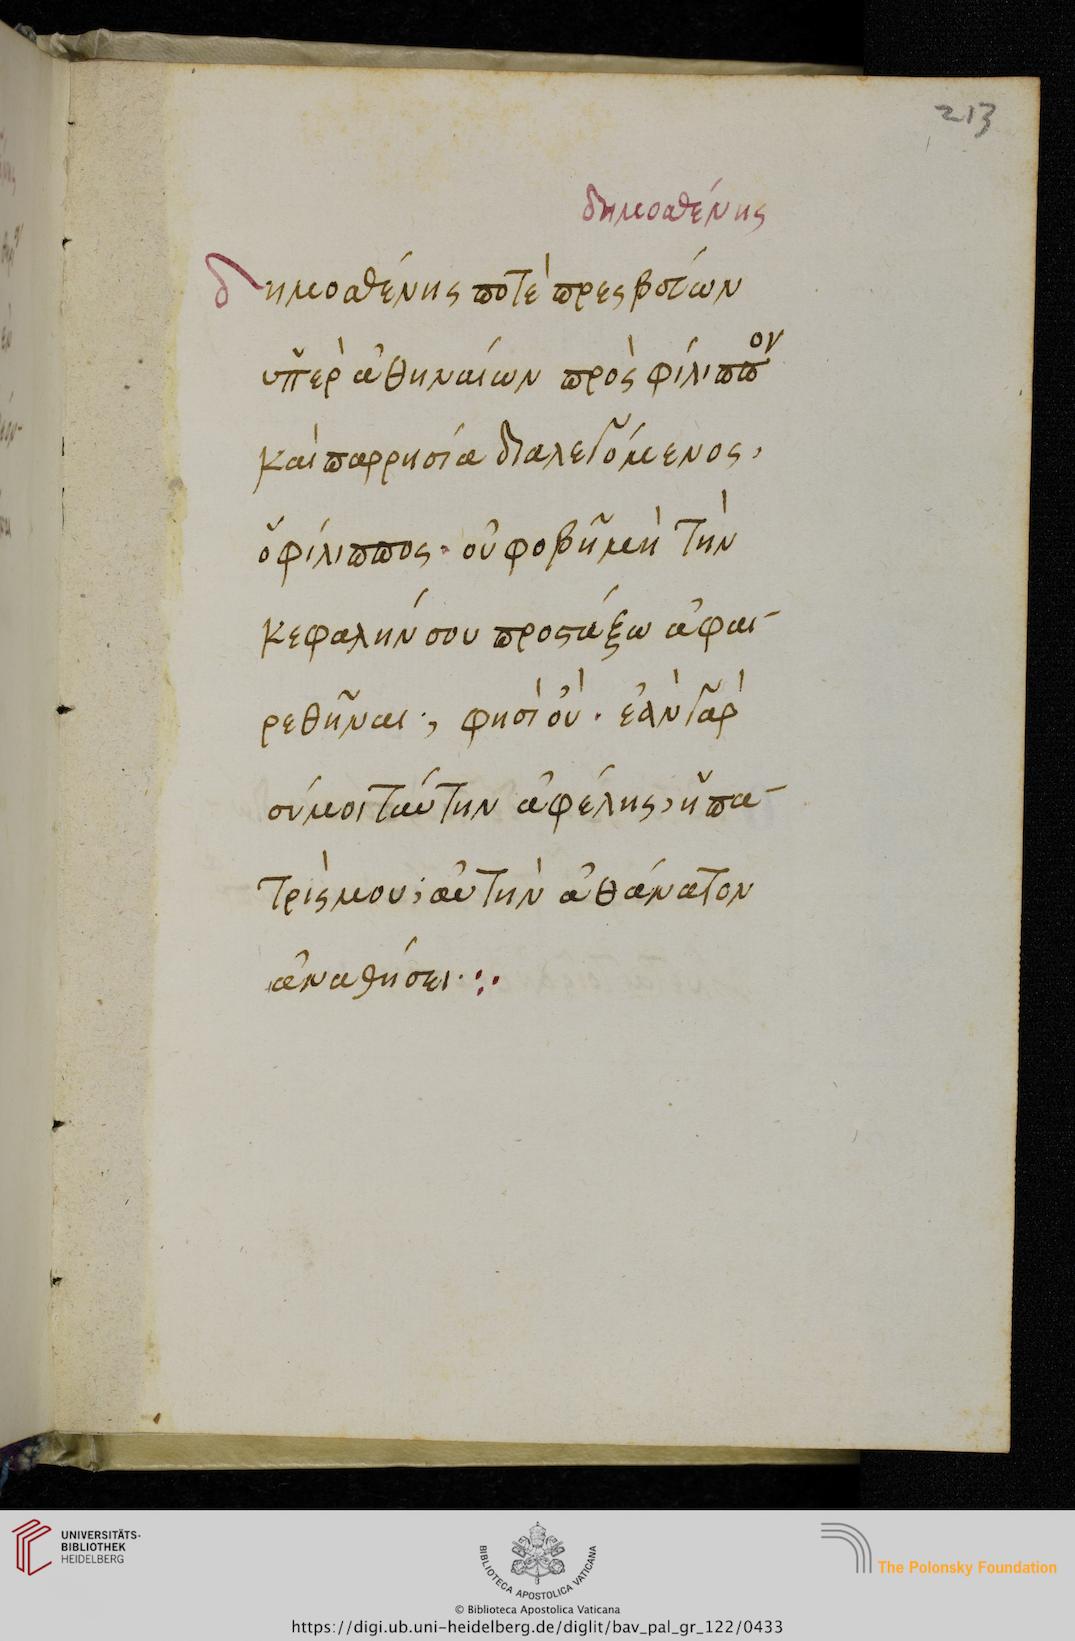 213
δημοσθένης
δημοσθένης ποτὲ πρεσβεύων
ὑπὲρ ἀθηναίων πρὸς φίλιππον
καὶ παρρησία διαλεγόμενος,
ὁ φίλιππος· οὐ φοβῆ μὴ τὴν
κεφαλήν σου προστάξω ἀφαι-
ρεθῆναι·, φησὶ οὐ· ἐὰν γὰρ
σύ μοι ταύτην ἀφέλης, ἡ πα-
τρίς μου; αὐτὴν ἀθάνατον
ἀναθήσει·:·
UNIVERSITÄTS-
BIBLIOTHEK
HEIDELBERG
BIBLIOTECA APOSTOLICA VATICANA
The Polonsky Foundation
© Biblioteca Apostolica Vaticana
https://digi.ub.uni-heidelberg.de/diglit/bav_pal_gr_122/0433